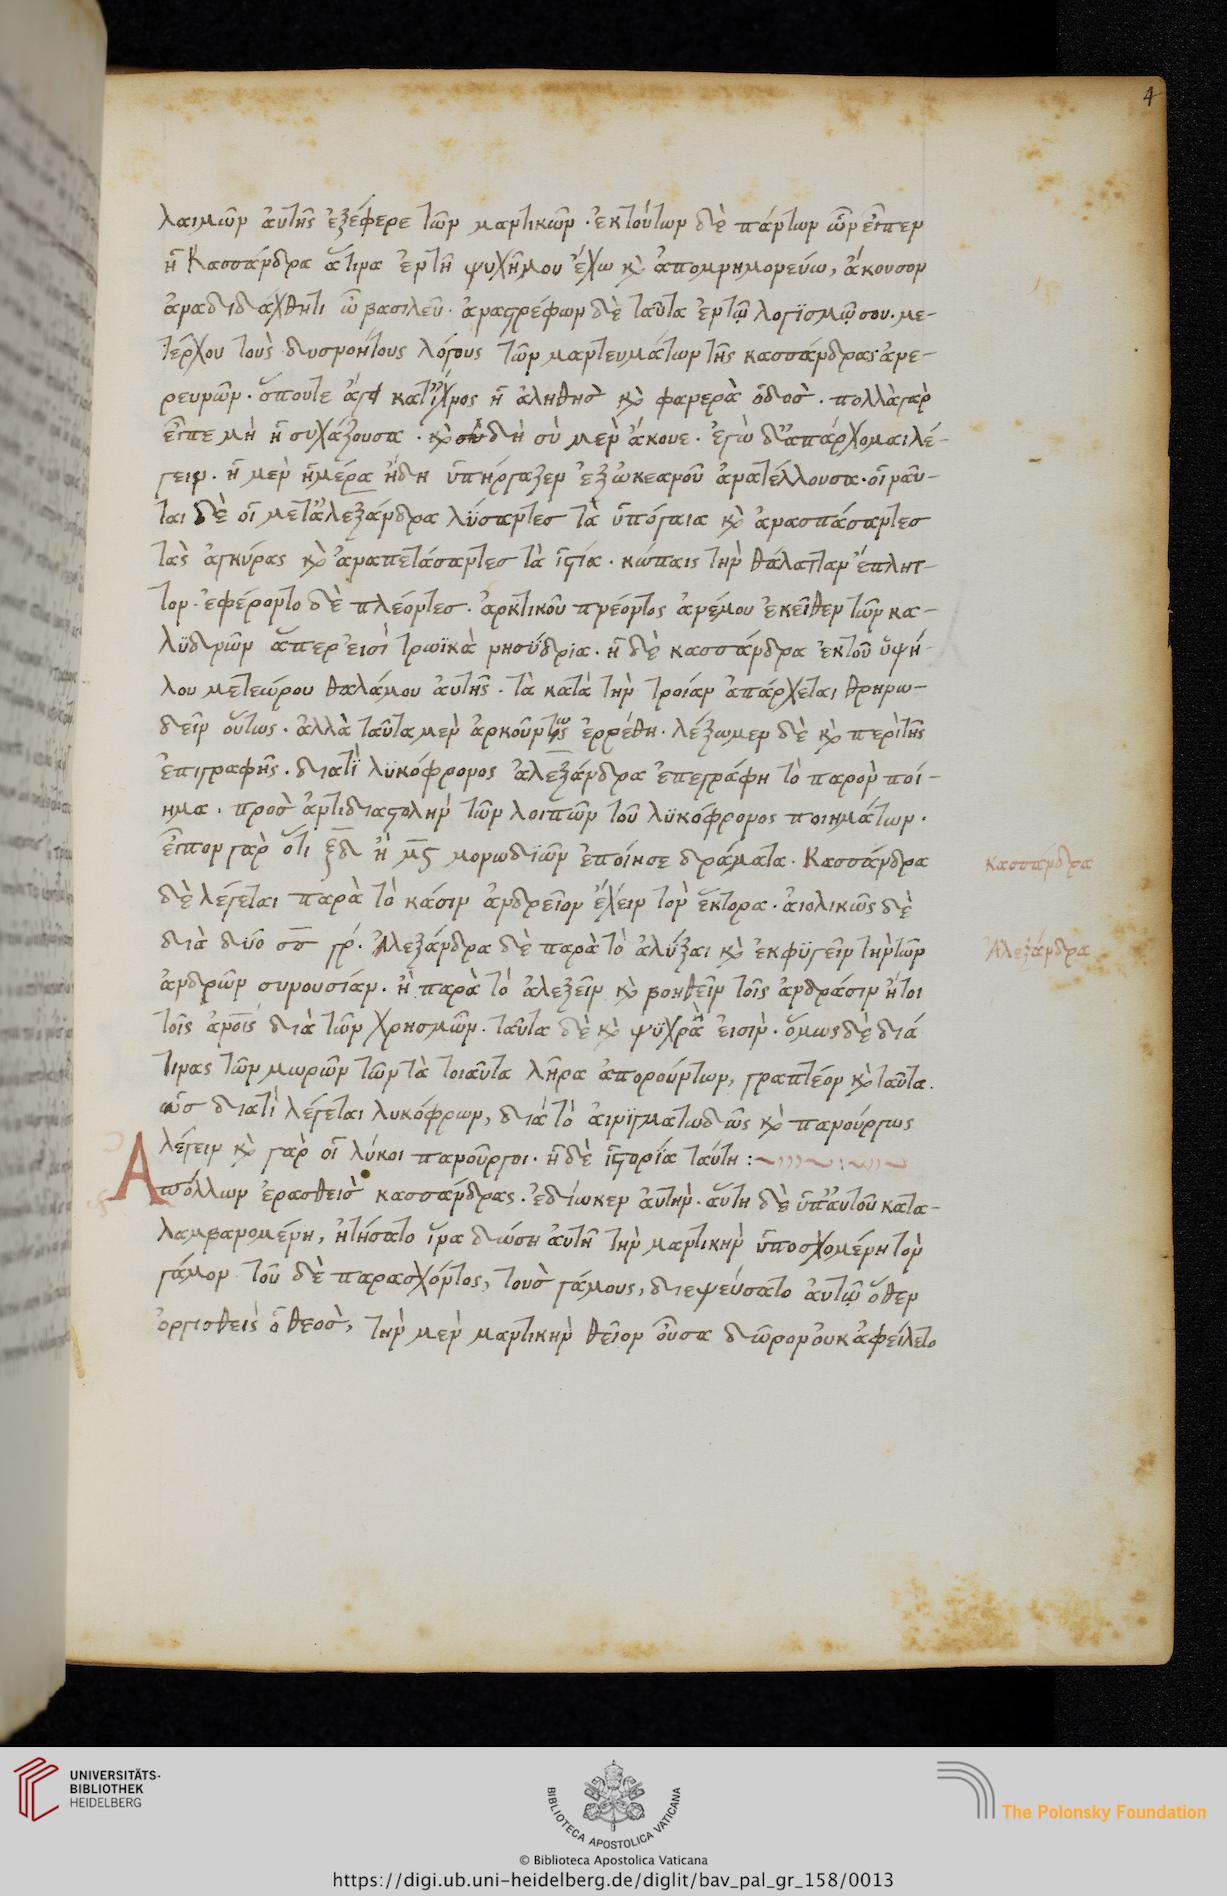 4
λαιμῶν ἀυτῆς ἐξέφερε τῶν μαντικῶν · ἐκτούτων δὲ πάντων ὧν εἶπεν
ἡ Κασσάνδρα ἅτινα ἐν τῆ ψυχῆ μου ἔχω κ̀ ἀπομνημονεύω, ἄκουσον
ἀναδιδάχθητι ὦ βασιλεῦ · ἀναστρέφων δὲ ταῦτα ἐν τῶ λογϊσμῶ σου. με-
τέρχου τοὺς δυσνοήτους λόγους τῶν μαντευμάτων τῆς κασσάνδρας ἀνε-
ρευνῶν · ὅπουτε κατίχνος ἡ ἀληθὴσ κ̀ φανερὰ ὁδὸσ · πολλὰ γὰρ
εἶπε μὴ ἡσυχάζουσα · κ̀ δὴ σὺ μὲν ἄκουε · ἐγὼ δ' ἀπάρχομαι λέ-
γειν · ἡ μὲν ἡμέρα ἤδη ὑπήργαζεν ἐξ ὠκεανοῦ ἀνατέλλουσα · οἱ ναῦ-
ται δὲ οἱ μετ' ἀλεξάνδρα λύσαντεσ τὰ ὑπόγαια κ̀ ἀνασπάσαντεσ
τὰς ἀγκύρας κ̀ ἀναπετάσαντεσ τὰ ἱστία · κώπαις τὴν θάλατταν ἔπλητ-
τον · ἐφέροντο δὲ πλέοντεσ · ἀρκτικοῦ πνέοντος ἀνέμου ἐκεῖθεν τῶν κα-
λϋδνῶν ἅπερ εἰσὶ τρωϊκὰ νησΰδρια · ἡ δὲ κασσάνδρα ἐκ τοῦ ὑψή-
λου μετεώρου θαλάμου ἀυτῆς · τὰ κατὰ τὴν τροίαν ἀπάρχεται θρηνω-
δεῖν οὕτως · ἀλλὰ ταῦτα μὲν ἀρκούντως ἐρρέθη · λέξωμεν δὲ κ̀ περὶ τῆς
ἐπιγραφῆς · διατί λϋκόφρονος ἀλεξάνδρα ἐπεγράφη τὸ παρὸν ποί-
ημα · προσ ἀντιδιαστολὴν τῶν λοιπῶν τοῦ λϋκόφρονος ποιημάτων ·
εἶπον γὰρ ὅτι ξδ ἢ μς μονωδϊῶν ἐποίησε δράματα · Κασσάνδρα
κασσάνδρα
δὲ λέγεται παρὰ τὸ κάσιν ἀνδρεῖον ἔχειν τὸν ἕκτορα · ἀιολικῶς δὲ
διὰ δύο σσ γρ. Ἀλεξάνδρα δὲ παρὰ τὸ ἀλύξαι κ̀ ἐκφϋγεῖν τὴν τῶν
Ἀλεξάνδρα
ἀνδρῶν συνουσίαν · ἢ παρὰ τὸ ἀλεξεῖν κ̀ βοηθεῖν τοῖς ἀνδράσιν ἤτοι
τοῖς ἀνοις διὰ τῶν χρησμῶν · ταῦτα δὲ κ̀ ψϋχρὰ ἐισιν · ὅμως δὲ διά
τινας τῶν μωρῶν τῶν τὰ τοιαῦτα λῆρα ἀπορούντων, γραπτέον κ̀ ταῦτα.
ὡσ διατί λέγεται λυκόφρων, διὰ τὸ ἀινϊγματωδῶς κ̀ πανούργως
λέγειν κ̀ γὰρ οἱ λύκοι πανοῦργοι · ἡ δὲ ἱστορία ταύτη :
Ἀπόλλων ἐρασθεὶσ κασσάνδρας · ἐδίωκεν ἀυτὴν · αὕτη δὲ ὑπ' ἀυτοῦ κατα-
λαμβανομένη, ἠτήσατο ἵνα δώση ἀυτῆ τὴν μαντικὴν ὑποσχομένη τὸν
γάμον τοῦ δὲ παρασχόντος, τοὺσ γάμους, διεψεύσατο ἀυτῶ ὅθεν
ὀργισθεὶς ὁ θεὸσ, τὴν μὲν μαντικὴν θεῖον οὖσα δῶρον ὀυκ ἀφείλετο
UNIVERSITÄTS-
BIBLIOTHEK
HEIDELBERG
BIBLIOTECA APOSTOLICA VATICANA
The Polonsky Foundation
© Biblioteca Apostolica Vaticana
https://digi.ub.uni-heidelberg.de/diglit/bav_pal_gr_158/0013